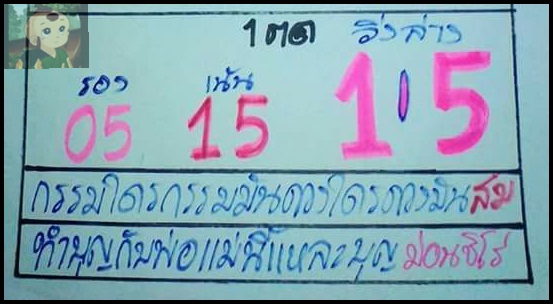 1 ตค วิ่งล่าง
รอง เน้น
05 15 1 5
กรรมใครกรรมมันดวงใครดวงมัน
ทำบุญกับพ่อแม่นี่แหละบุญ